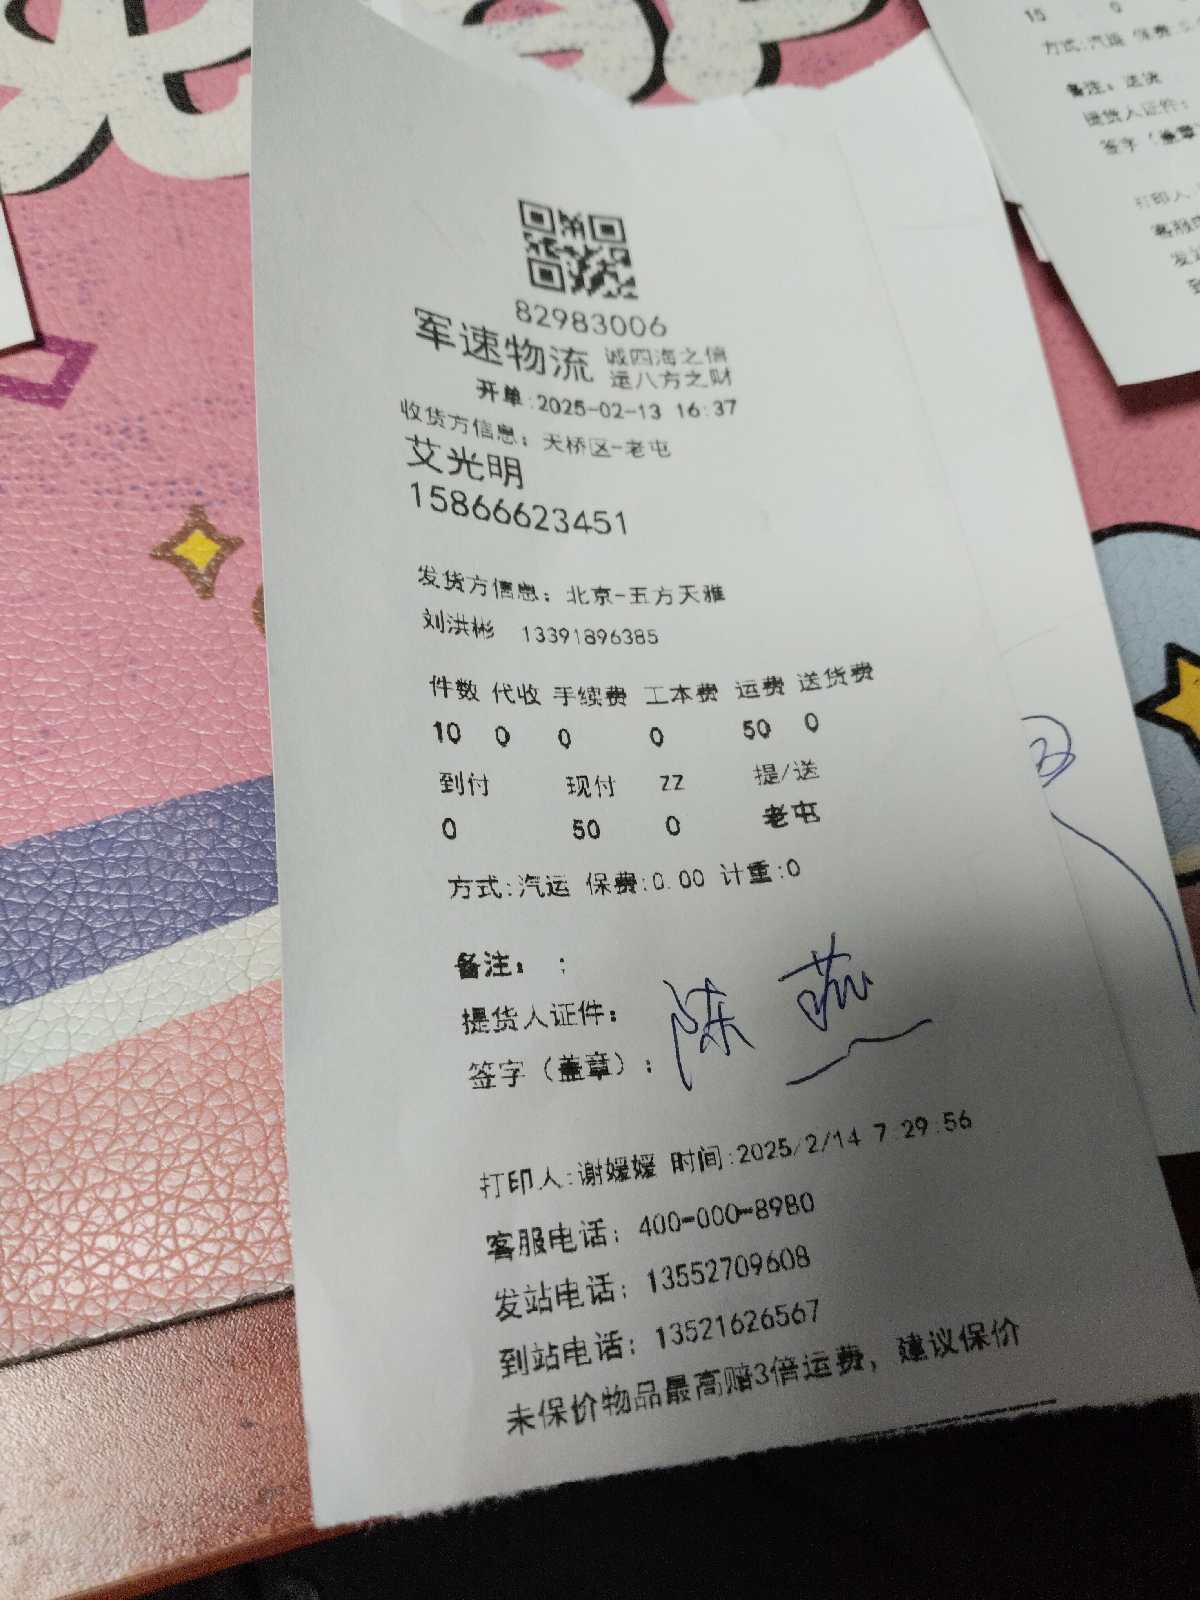 82983006
军速物流 诚四海之信
运八方之财
开单:2025-02-13 16:37
收货方信息：天桥区-老屯
艾光明
15866623451
发货方信息：北京-五方天雅
刘洪彬 13391896385
件数 代收 手续费 工本费 运费 送货费
10 0 0 0 50 0
到付 现付 ZZ 提/送
0 50 0 老屯
方式:汽运 保费:0.00 计重:0
备注： ;
提货人证件：
签字（盖章）： 陈燕
打印人:谢媛媛 时间:2025/2/14 7:29:56
客服电话：400-000-8980
发站电话：13552709608
到站电话：13521626567
未保价物品最高赔3倍运费，建议保价
15 0
方式:汽运 保费:
备注：送货
提货人证件：
签字（盖章
打印人
客服